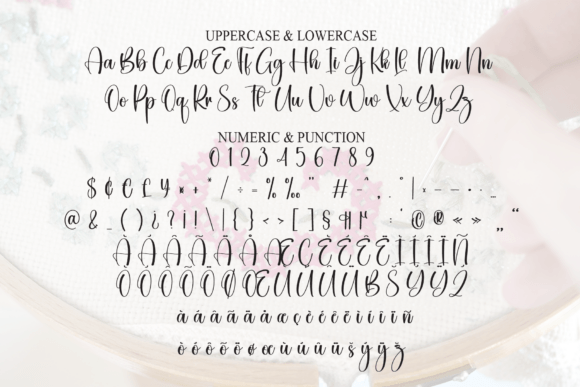 UPPERCASE & LOWERCASE
Aa Bb Cc Dd Ee Ff Gg Hh Ii Jj Kk Ll Mm Nn
Oo Pp Qq Rr Ss Tt Uu Vv Ww Xx Yy Zz
NUMERIC & PUNCTION
0 1 2 3 4 5 6 7 8 9
$ ¢ € £ ¥ × + * / ÷ = % ‰ " # - ^ , . ° | × – — · . …
@ & _ ( ) ¿ ? ¡ ! \ | { } < > [ ] § ¶ : ' © ® « » „ “
À Á Â Ã Ä Å Æ Ç È É Ê Ë Ì Í Î Ï Ñ
Ò Ó Ô Õ Ö Ø Œ Ù Ú Û Ü ß Š Ý Ÿ Ž
à á â ã ä å æ ç è é ê ë ì í î ï ñ
ò ó ô õ ö ø œ ù ú û ü š ý ÿ ž